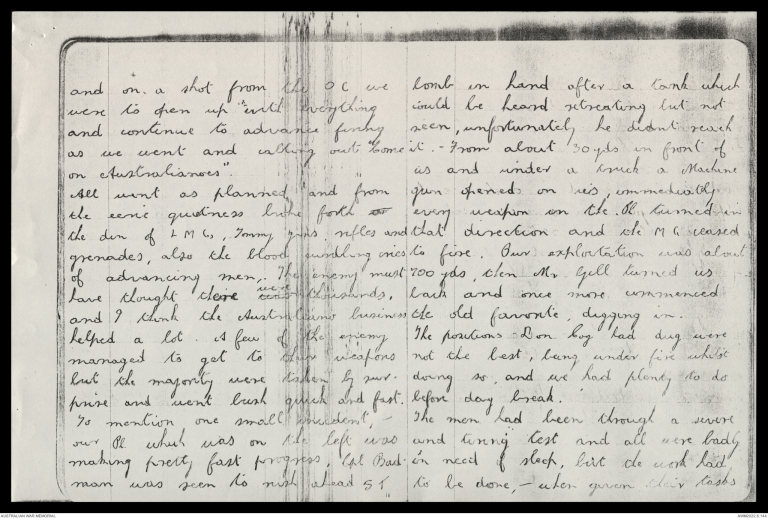 and on a shot from the OC we
were to open up "with everything
and continue to advance firing
as we went and calling out "Come
on Australianoes".
All went as planned, and from
the eerie quietness broke forth
the din of L M Gs, Tommy guns rifles and
grenades, also the blood curdling cries
of advancing men. The enemy must
have thought there were thousands,
and I think the Australiano business
helped a lot. A few of the enemy
managed to get to their weapons
but the majority were taken by sur-
prise and went bush quick and fast.
To mention one small incident, -
our Pl which was on the left was
making pretty fast progress, Cpl Bad-
man was seen to rush ahead ST
bomb in hand after a tank which
could be heard retreating but not
seen, unfortunately he didnt reach
it. - From about 30 yds in front of
us and under a truck a Machine
gun opened on us, immediately
every weapon in the Pl turned in
that direction and the M G ceased
to fire. Our exploitation was about
700 yds, then Mr Gill turned us
back and once more commenced
the old favorite, digging in.
The positions Don Coy had dug were
not the best, being under fire whilst
doing so, and we had plenty to do
before day break.
The men had been through a severe
and tiring test and all were badly
in need of sleep, but the work had
to be done, - when given their tasks
AUSTRALIAN WAR MEMORIAL